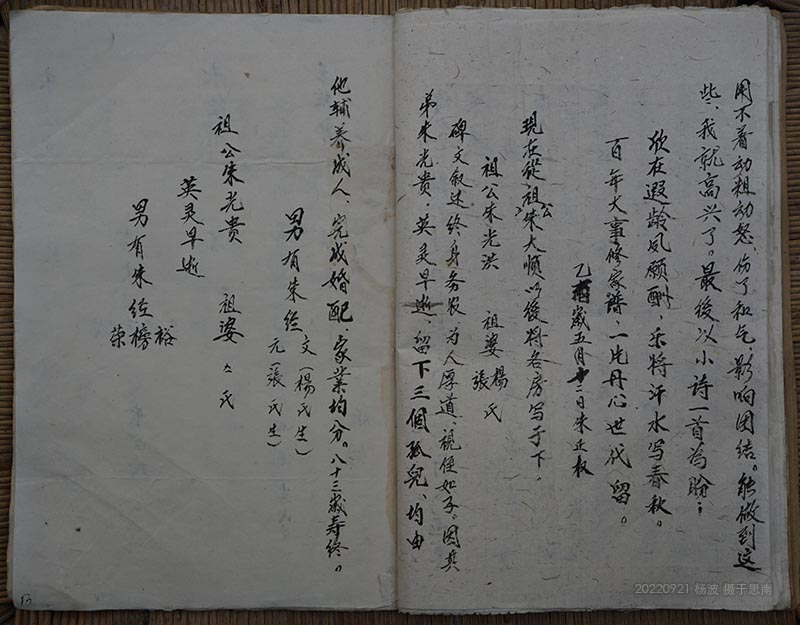 用不着动粗动怒，伤了和气，影响团结。能做到这
些，我就高兴了。最後以小诗一首为盼：
欣在遐龄夙愿酬，乐将汗水写春秋。
百年大事修家谱，一片丹心世代留。
乙酉歲五月十二日朱正
現在從祖公朱大顺以後将各房写于下。
祖公朱光洪 祖婆楊張氏
碑文叙述终身务农，为人厚道，視侄如子。因其
弟朱光贵，英灵早逝，留下三個孤兒，均由
他辅养成人，完成婚配，家業均分。八十三歲寿终。
男有朱纶文（楊氏生）
元（張氏生）
祖公朱光贵 祖婆么氏
英灵早逝
男有朱纶裕
榜
荣
13
20220921 杨波 摄于思南